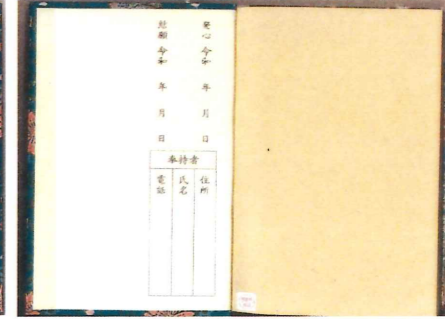 発心 令和 年 月 日
結願 令和 年 月 日
奉持者
住所
氏名
電話